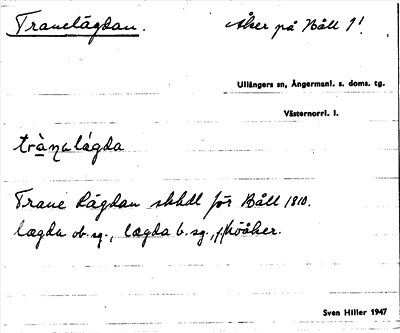 Tranelägdan.
Åker på Båll 1!
Ullångers sn, Ångermanl. s. doms. tg.
Västernorrl. l.
trànalágda
Trane Lägdan skhdl för Båll 1810.
lægda ob. sg., lægda b. sg.,